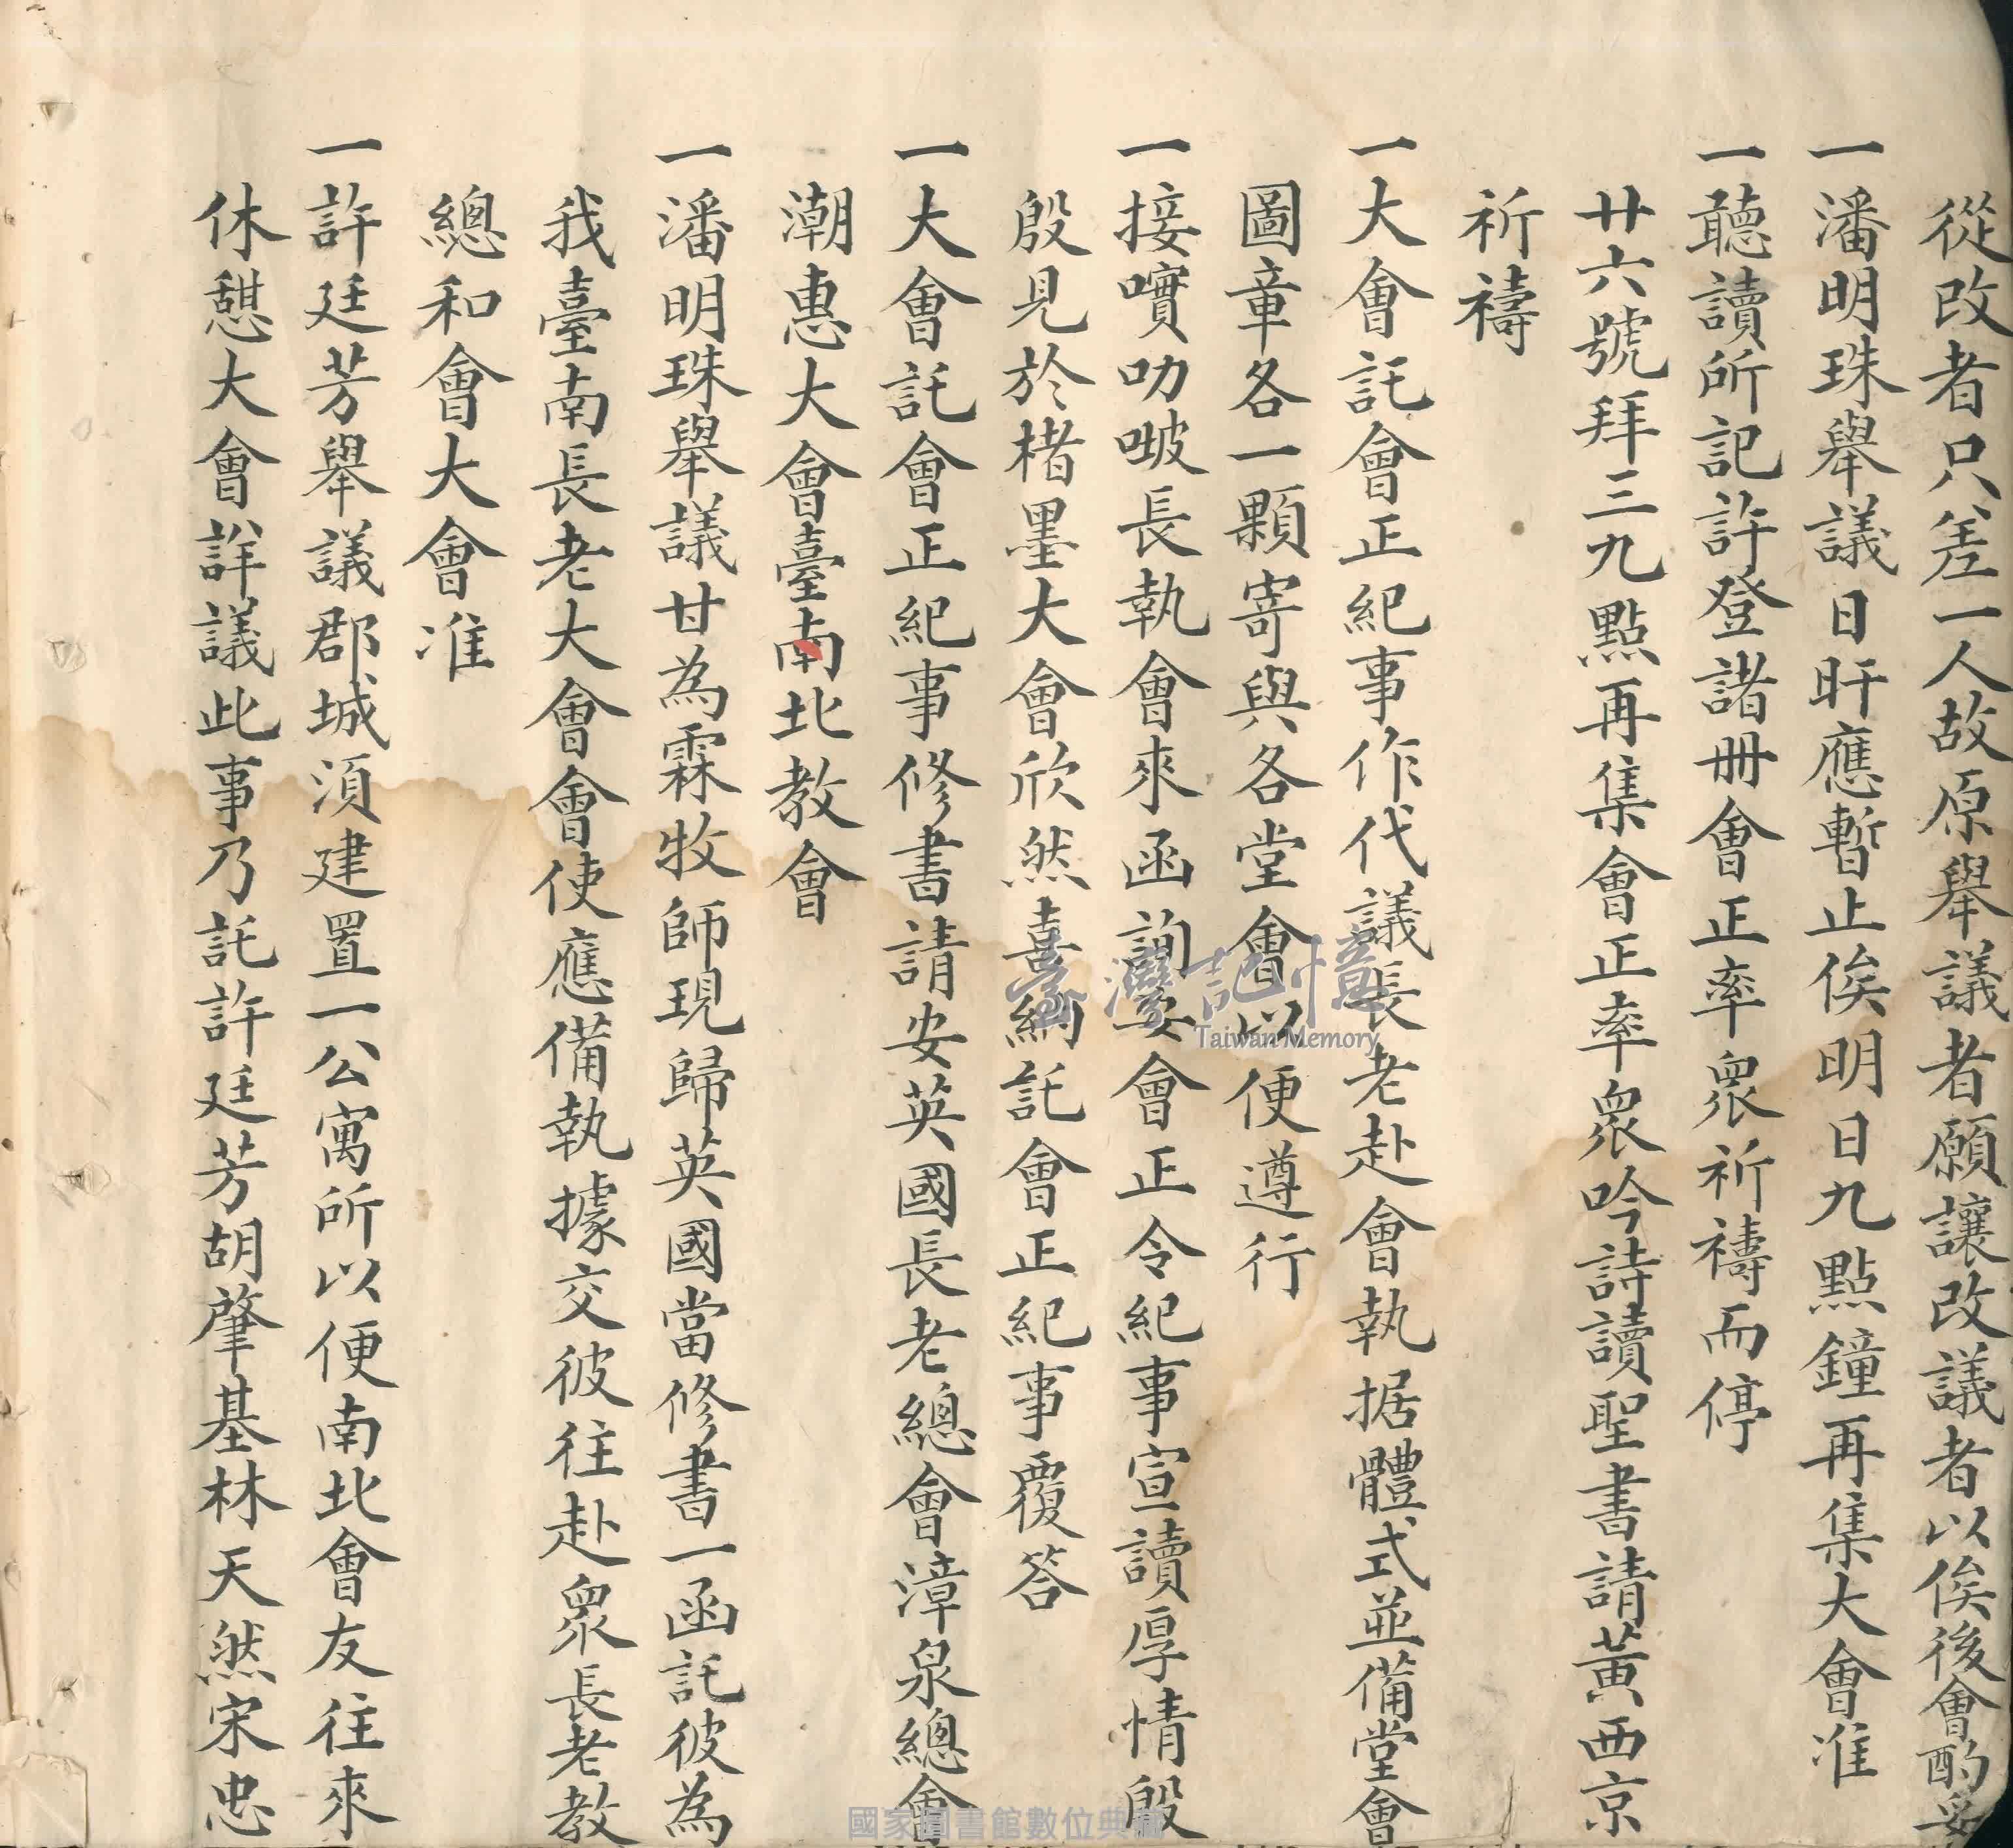 從改者只差一人故原舉議者願讓改議者以俟後會酌妥
一潘明珠舉議日旰應暫止俟明日九點鐘再集大會准
一聽讀所記許登諸冊會正率眾祈禱而停
廿六號拜三九點再集會正率眾吟詩讀聖書請黃西京
祈禱
一大會託會正紀事作代議長老赴會執据體式並備堂會
圖章各一顆寄與各堂會以便遵行
一接嘪叻㗞長執會來函詢安會正令紀事宣讀厚情殷
殷見於楮墨大會欣然喜納託會正紀事覆答
一大會託會正紀事修書請安英國長老總會漳泉總會
潮惠大會臺南北教會
一潘明珠舉議甘為霖牧師現歸英國當修書一函託彼為
我臺南長老大會會使應備執據交彼往赴眾長老教
總和會大會准
一許廷芳舉議郡城須建置一公寓所以便南北會友往來
休憩大會詳議此事乃託許廷芳胡肇基林天然宋忠
臺灣記憶
Taiwan Memory
國家圖書館數位典藏